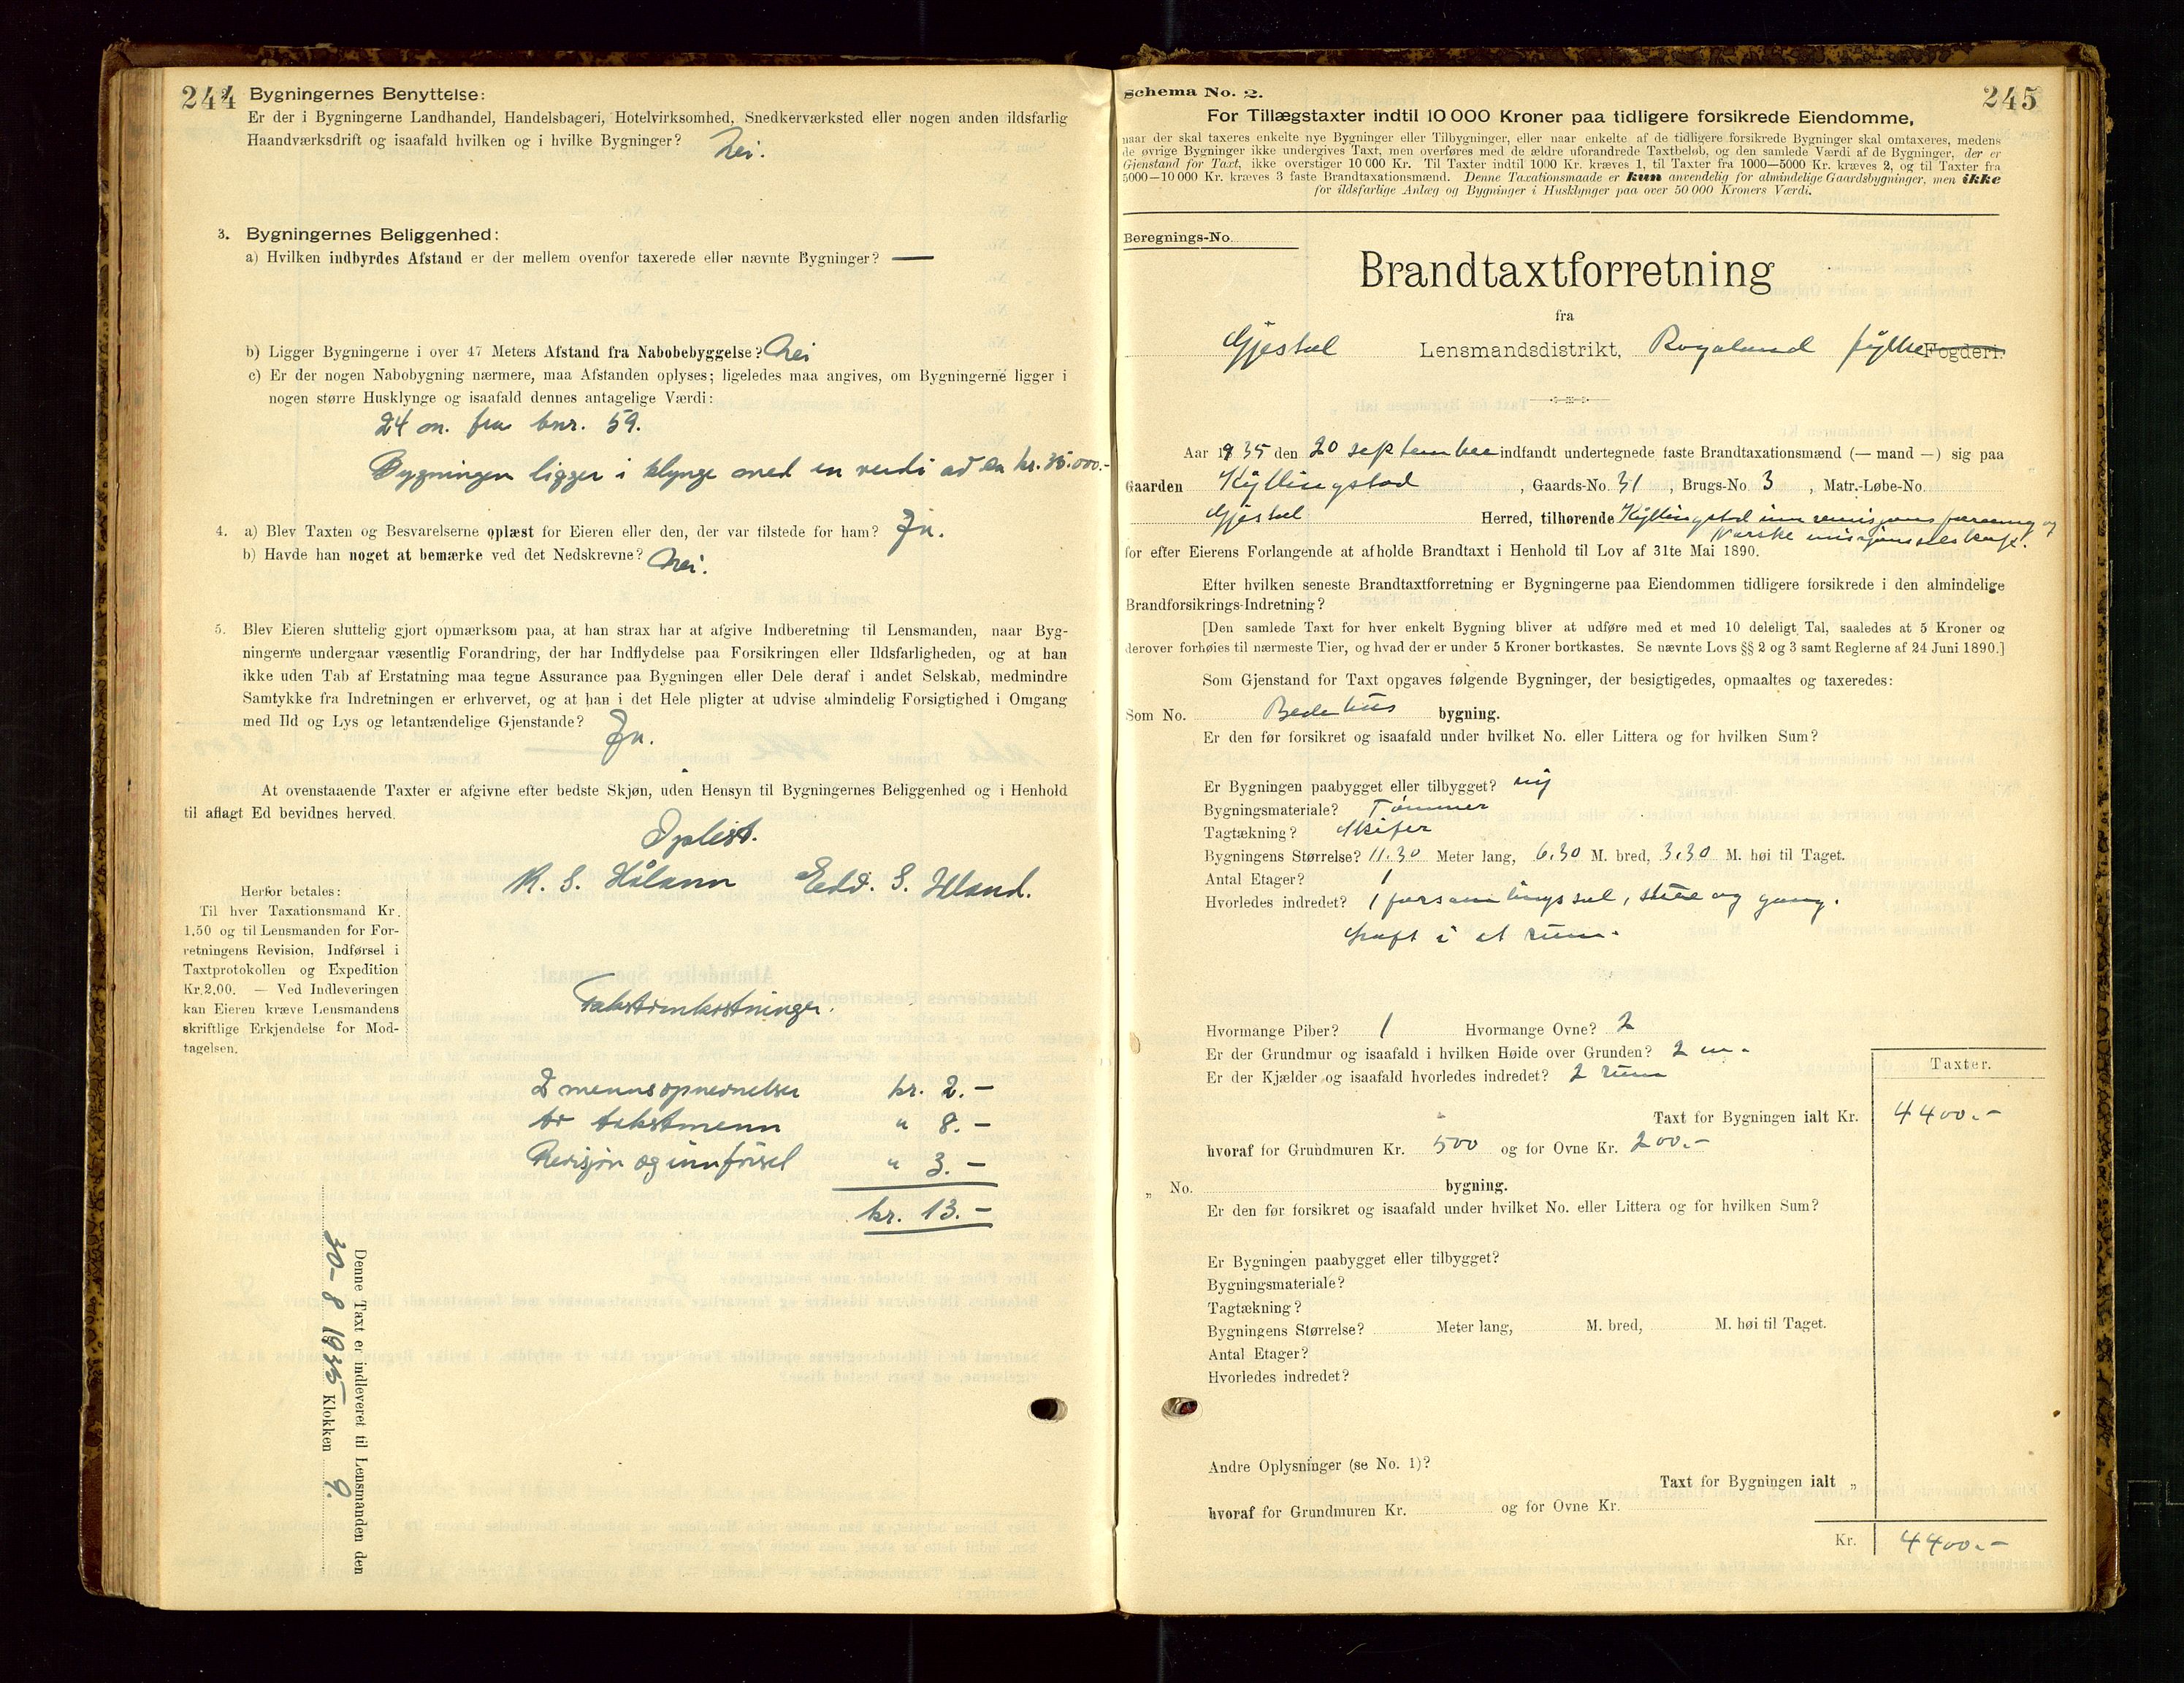 244
2. Bygningernes Benyttelse:
Er der i Bygningerne Landhandel, Handelsbageri, Hotelvirksomhed, Snedkerværksted eller nogen anden ildsfarlig
Haandværksdrift og isaafald hvilken og i hvilke Bygninger? Nei.
3. Bygningernes Beliggenhed:
a) Hvilken indbyrdes Afstand er der mellem ovenfor taxerede eller nævnte Bygninger? —
b) Ligger Bygningerne i over 47 Meters Afstand fra Nabobebyggelse? Nei
c) Er der nogen Nabobygning nærmere, maa Afstanden oplyses; ligeledes maa angives, om Bygningerne ligger i
nogen større Husklynge og isaafald dennes antagelige Værdi:
24 m. fra bnr. 59.
Bygningen ligger i klynge med en verdi av ca kr. 35.000.-
4. a) Blev Taxten og Besvarelserne oplæst for Eieren eller den, der var tilstede for ham? Ja.
b) Havde han noget at bemærke ved det Nedskrevne? Nei.
5. Blev Eieren sluttelig gjort opmærksom paa, at han strax har at afgive Indberetning til Lensmanden, naar Byg-
ningerne undergaar væsentlig Forandring, der har Indflydelse paa Forsikringen eller Ildsfarligheden, og at han
ikke uden Tab af Erstatning maa tegne Assurance paa Bygningen eller Dele deraf i andet Selskab, medmindre
Samtykke fra Indretningen er erhvervet, og at han i det Hele pligter at udvise almindelig Forsigtighed i Omgang
med Ild og Lys og letantændelige Gjenstande? Ja.
At ovenstaaende Taxter er afgivne efter bedste Skjøn, uden Hensyn til Bygningernes Beliggenhed og i Henhold
til aflagt Ed bevidnes herved.
Oplest.
K. S. Håland Edv. S. Uland.
Herfor betales:
Til hver Taxationsmand Kr.
1,50 og til Lensmanden for For-
retningens Revision, Indførsel i
Taxtprotokollen og Expedition
Kr. 2,00. — Ved Indleveringen
kan Eieren kræve Lensmandens
skriftlige Erkjendelse for Mod-
tagelsen.
Takstomkostninger.
2 mennsopnevnelser kr. 2.-
to takstmenn " 8.-
Revisjon og innførsel " 3.-
kr. 13.-
Denne Taxt er indleveret til Lensmanden den
30-8 1935 Klokken 9.
Schema No. 2.
245
For Tillægstaxter indtil 10 000 Kroner paa tidligere forsikrede Eiendomme,
naar der skal taxeres enkelte nye Bygninger eller Tilbygninger, eller naar enkelte af de tidligere forsikrede Bygninger skal omtaxeres, medens
de øvrige Bygninger ikke undergives Taxt, men overføres med de ældre uforandrede Taxtbeløb, og den samlede Værdi af de Bygninger, der er
Gjenstand for Taxt, ikke overstiger 10 000 Kr. Til Taxter indtil 1000 Kr. kræves 1, til Taxter fra 1000—5000 Kr. kræves 2, og til Taxter fra
5000—10 000 Kr. kræves 3 faste Brandtaxationsmænd. Denne Taxationsmaade er kun anvendelig for almindelige Gaardsbygninger, men ikke
for ildsfarlige Anlæg og Bygninger i Husklynger paa over 50 000 Kroners Værdi.
Beregnings-No.
Brandtaxtforretning
fra
Gjestal Lensmandsdistrikt, Rogaland fylke Fogderi.
Aar 1935 den 20 september indfandt undertegnede faste Brandtaxationsmænd (— mand —) sig paa
Gaarden Kyllingstad, Gaards-No. 31, Brugs-No. 3, Matr.-Løbe-No.
Gjestal Herred, tilhørende Kyllingstad innremisjons forening og
Norske misjonsselskap.
for efter Eierens Forlangende at afholde Brandtaxt i Henhold til Lov af 31te Mai 1890.
Efter hvilken seneste Brandtaxtforretning er Bygningerne paa Eiendommen tidligere forsikrede i den almindelige
Brandforsikrings-Indretning?
[Den samlede Taxt for hver enkelt Bygning bliver at udføre med et med 10 deleligt Tal, saaledes at 5 Kroner og
derover forhøies til nærmeste Tier, og hvad der er under 5 Kroner bortkastes. Se nævnte Lovs §§ 2 og 3 samt Reglerne af 24 Juni 1890.]
Som Gjenstand for Taxt opgaves følgende Bygninger, der besigtigedes, opmaaltes og taxeredes:
Som No. Bedehus bygning.
Er den før forsikret og isaafald under hvilket No. eller Littera og for hvilken Sum?
Er Bygningen paabygget eller tilbygget? ny
Bygningsmateriale? Tømmer
Tagtækning? Skifer
Bygningens Størrelse? 11.30 Meter lang, 6.30 M. bred, 3.30 M. høi til Taget.
Antal Etager? 1
Hvorledes indredet? 1 forsamlingssal, stue og gang.
Loft i et rum.
Hvormange Piber? 1 Hvormange Ovne? 2
Er der Grundmur og isaafald i hvilken Høide over Grunden? 2 m.
Er der Kjælder og isaafald hvorledes indredet? 2 rum
Taxter.
Taxt for Bygningen ialt Kr. 4400.-
hvoraf for Grundmuren Kr. 500 og for Ovne Kr. 200.-
„ No. bygning.
Er den før forsikret og isaafald under hvilket No. eller Littera og for hvilken Sum?
Er Bygningen paabygget eller tilbygget?
Bygningsmateriale?
Tagtækning?
Bygningens Størrelse? Meter lang, M. bred, M. høi til Taget.
Antal Etager?
Hvorledes indredet?
Andre Oplysninger (se No. 1)?
Taxt for Bygningen ialt „
hvoraf for Grundmuren Kr. og for Ovne Kr.
Kr. 4400.-